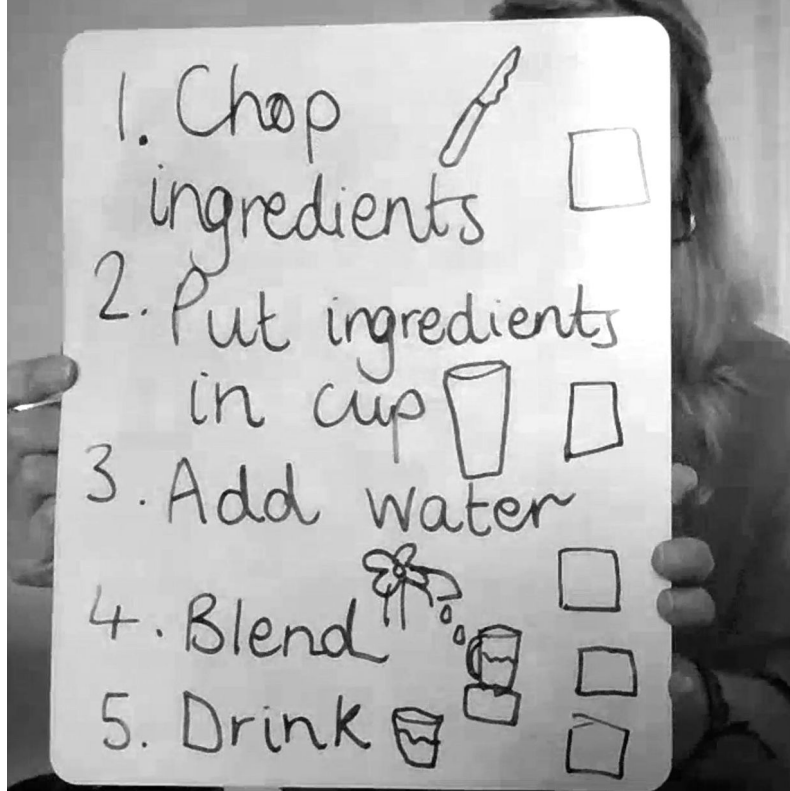 1. Chop
ingredients
2. Put ingredients
in cup
3. Add water
4. Blend
5. Drink